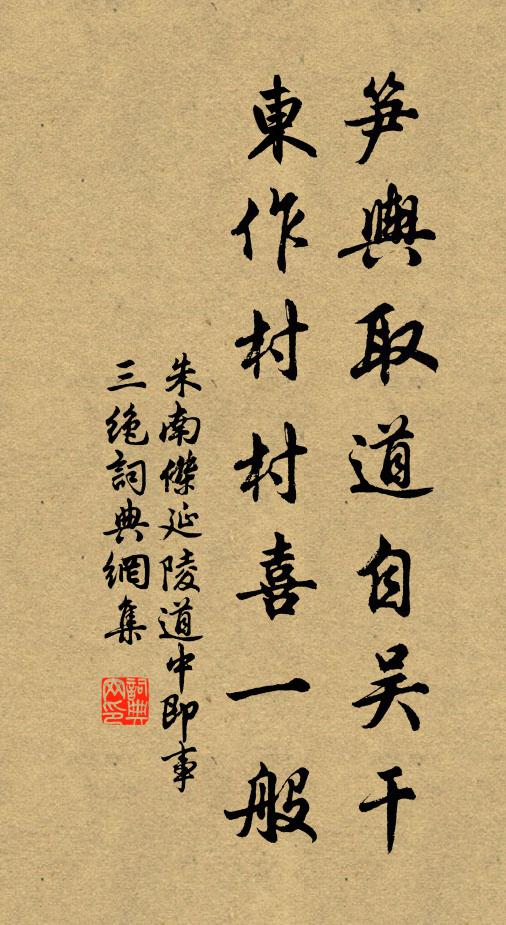 笋輿取道自吴干
東作村村喜一般
朱南傑延陵道中即事
三絶詞典網集
詞典網印